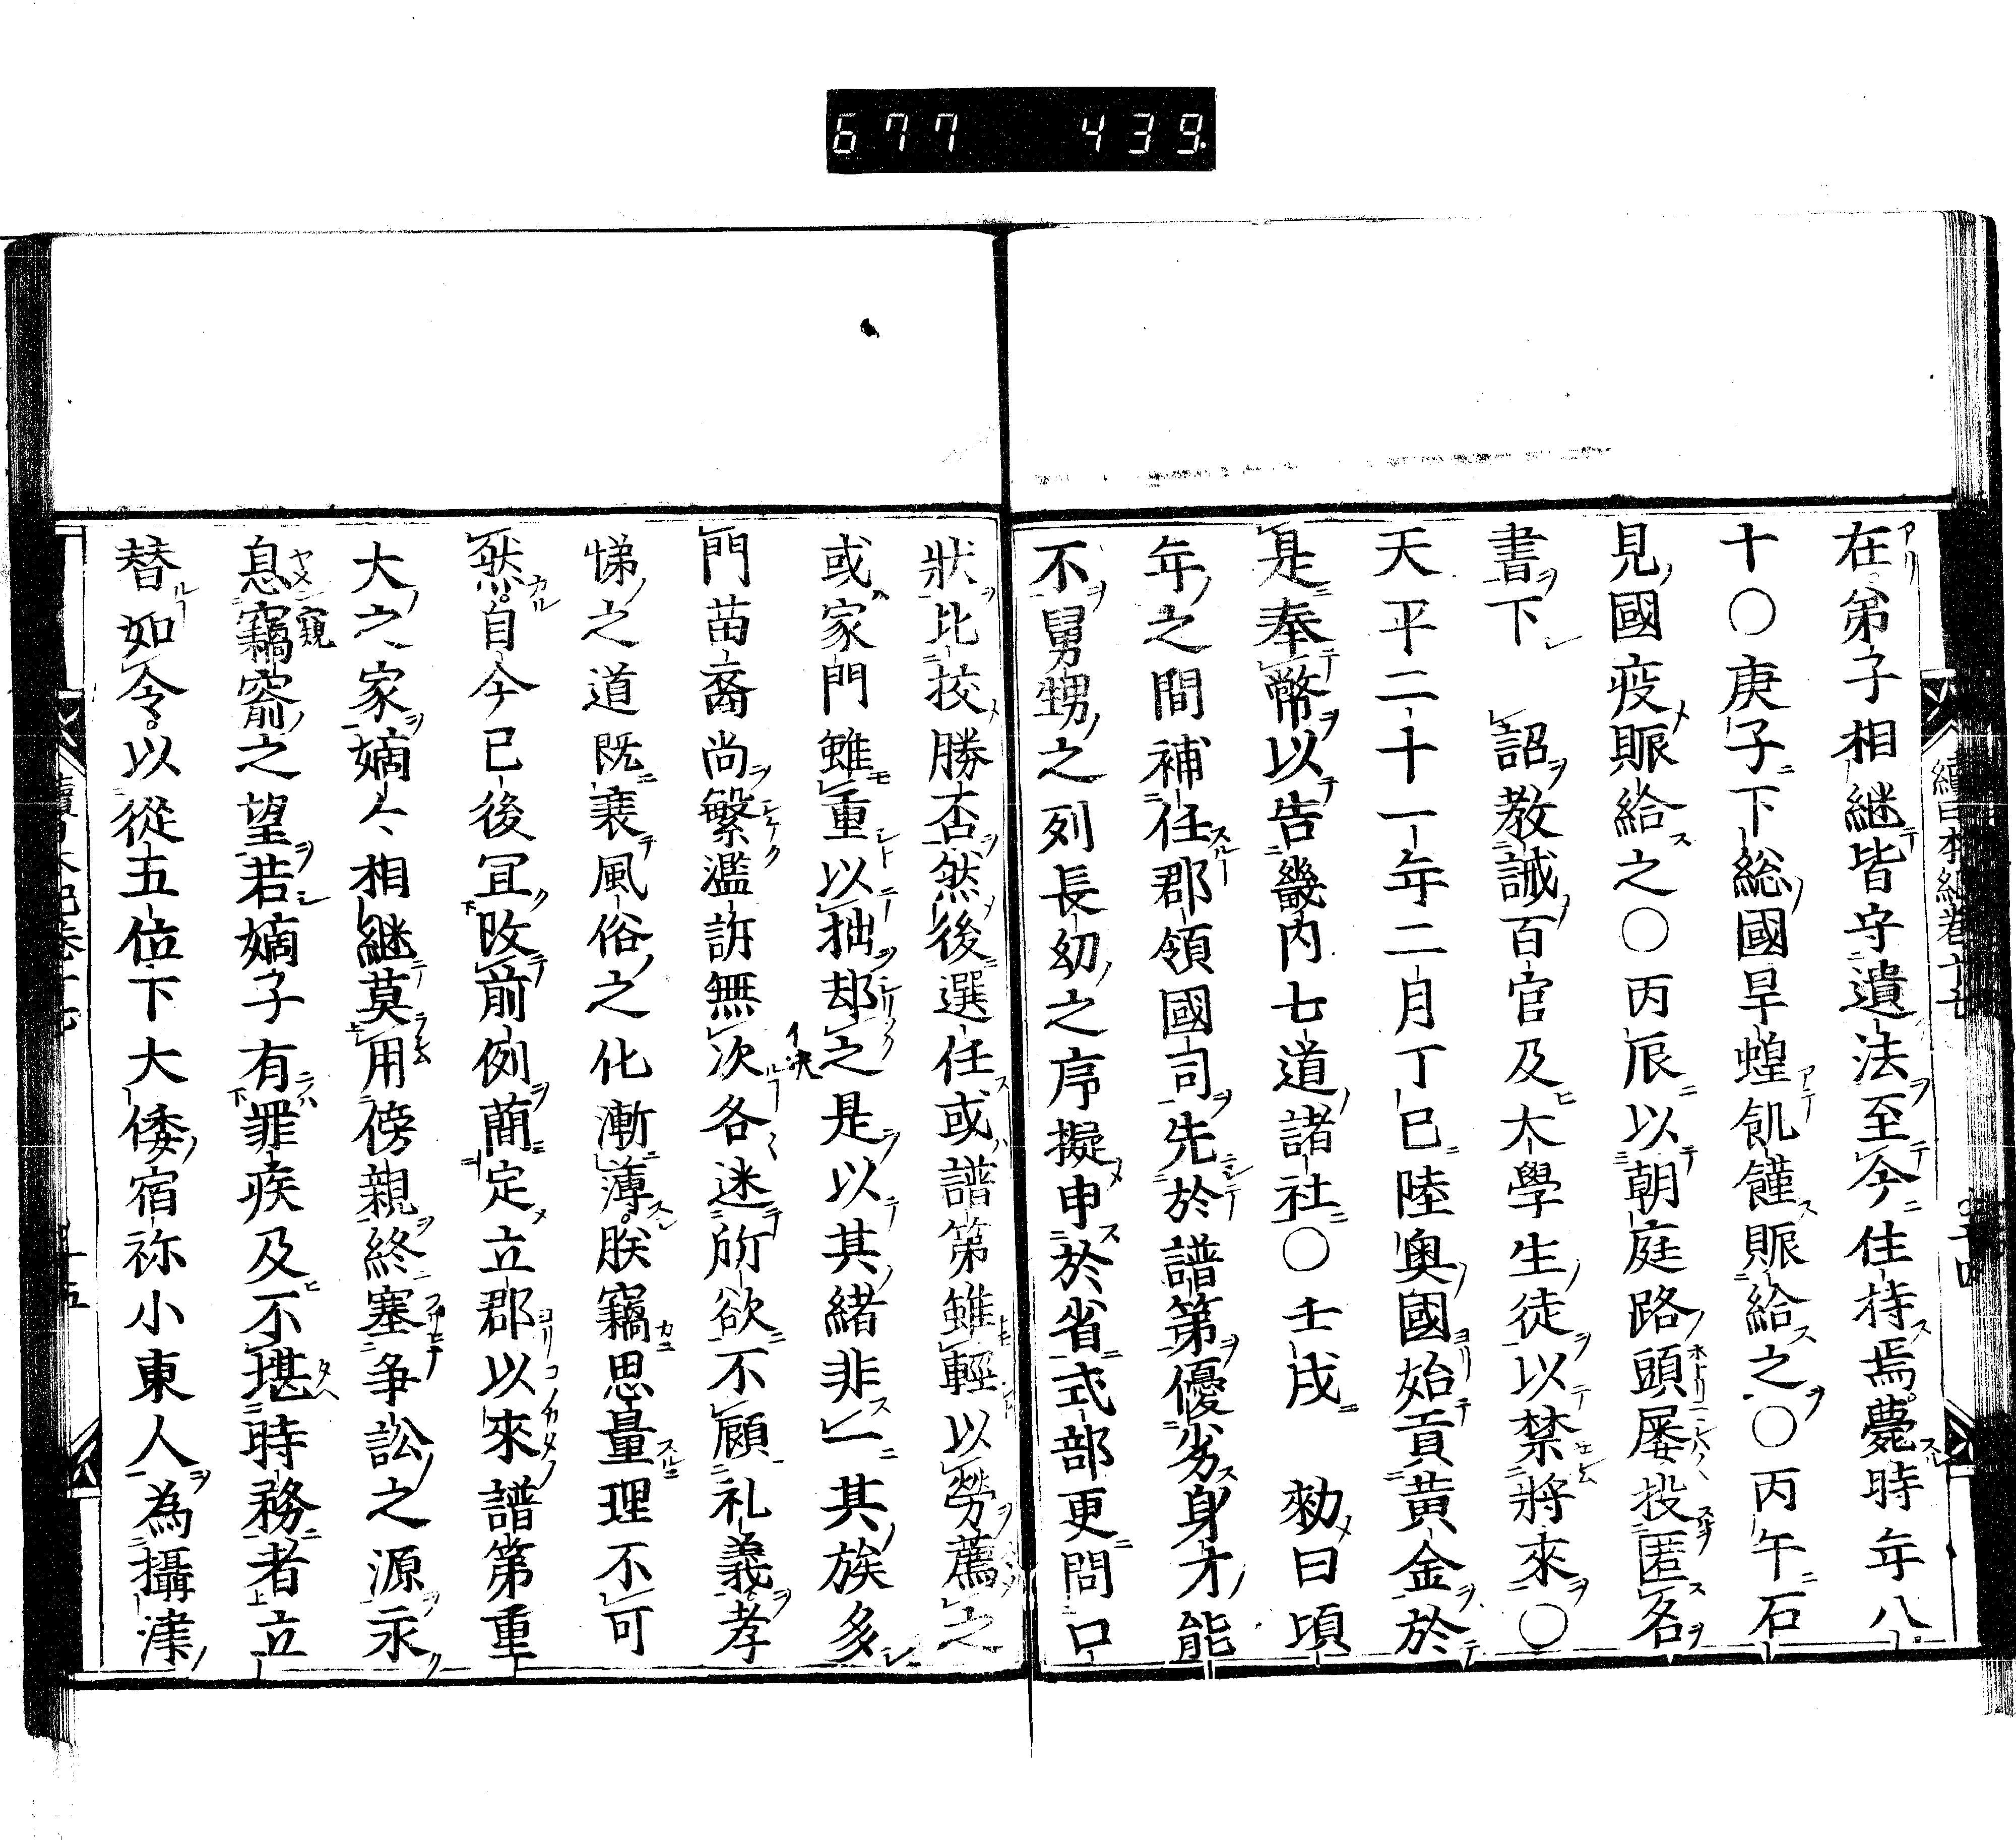 677 439.
在弟子相継皆守遺法至今住持焉薨時年八
十〇庚子下総國旱蝗飢饉賑給之〇丙午石
見國疫賑給之〇丙辰以朝庭路頭屡投匿名
書下 詔教誡百官及大學生徒以禁將來〇
天平二十一年二月丁巳陸奥國始貢黄金於
是奉幣以告畿内七道諸社〇壬戌 勅曰頃
年之間補任郡領國司先於譜第優劣身才能
不舅甥之列長幼之序擬申於省式部更問口
狀比挍勝否然後選任或譜第雖輕以勞薦之
或家門雖重以拙却之是以其緒非一其族多
門苗裔尚繁濫訴無次各迷所欲不顧礼義孝
悌之道既衰風俗之化漸薄朕竊思量理不可
然自今已後冝改前例簡定立郡以來譜第重
大之家嫡〻相継莫用傍親終塞争訟之源永
息竊窬之望若嫡子有罪疾及不堪時務者立
替如令以從五位下大倭宿祢小東人為攝津